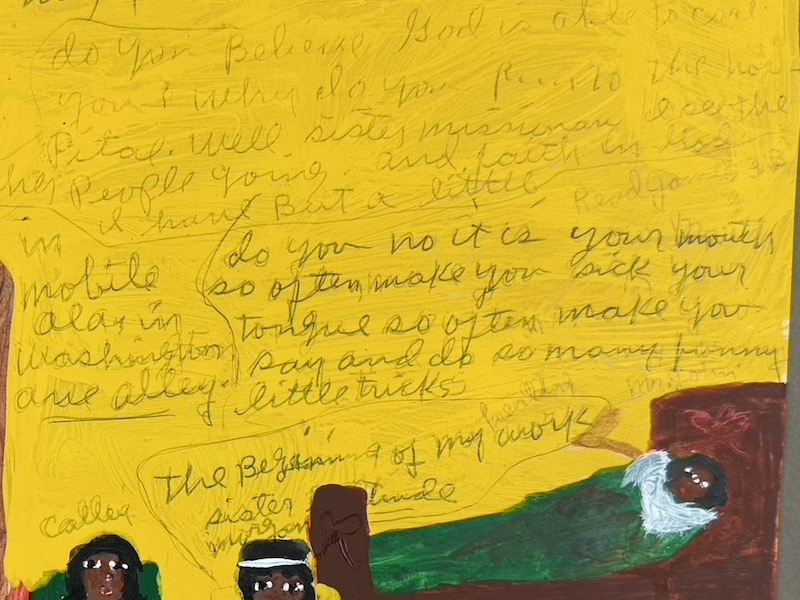 do you Believe God is able to cool
you & why do you Run to the hos-
Pital. Well sister missionary I see the
her People going. and faith in God
i have But a little Read
in
mobile
ala, in
Washington
ave alley.
do you no it is your mouth
so often make you sick your
tongue so often make you
say and do so many funny
little tricks
healing
the Begining of my work
sister
morgan
called